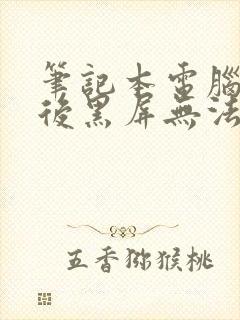 筆記本電腦
後黑屏無法
五香猕猴桃